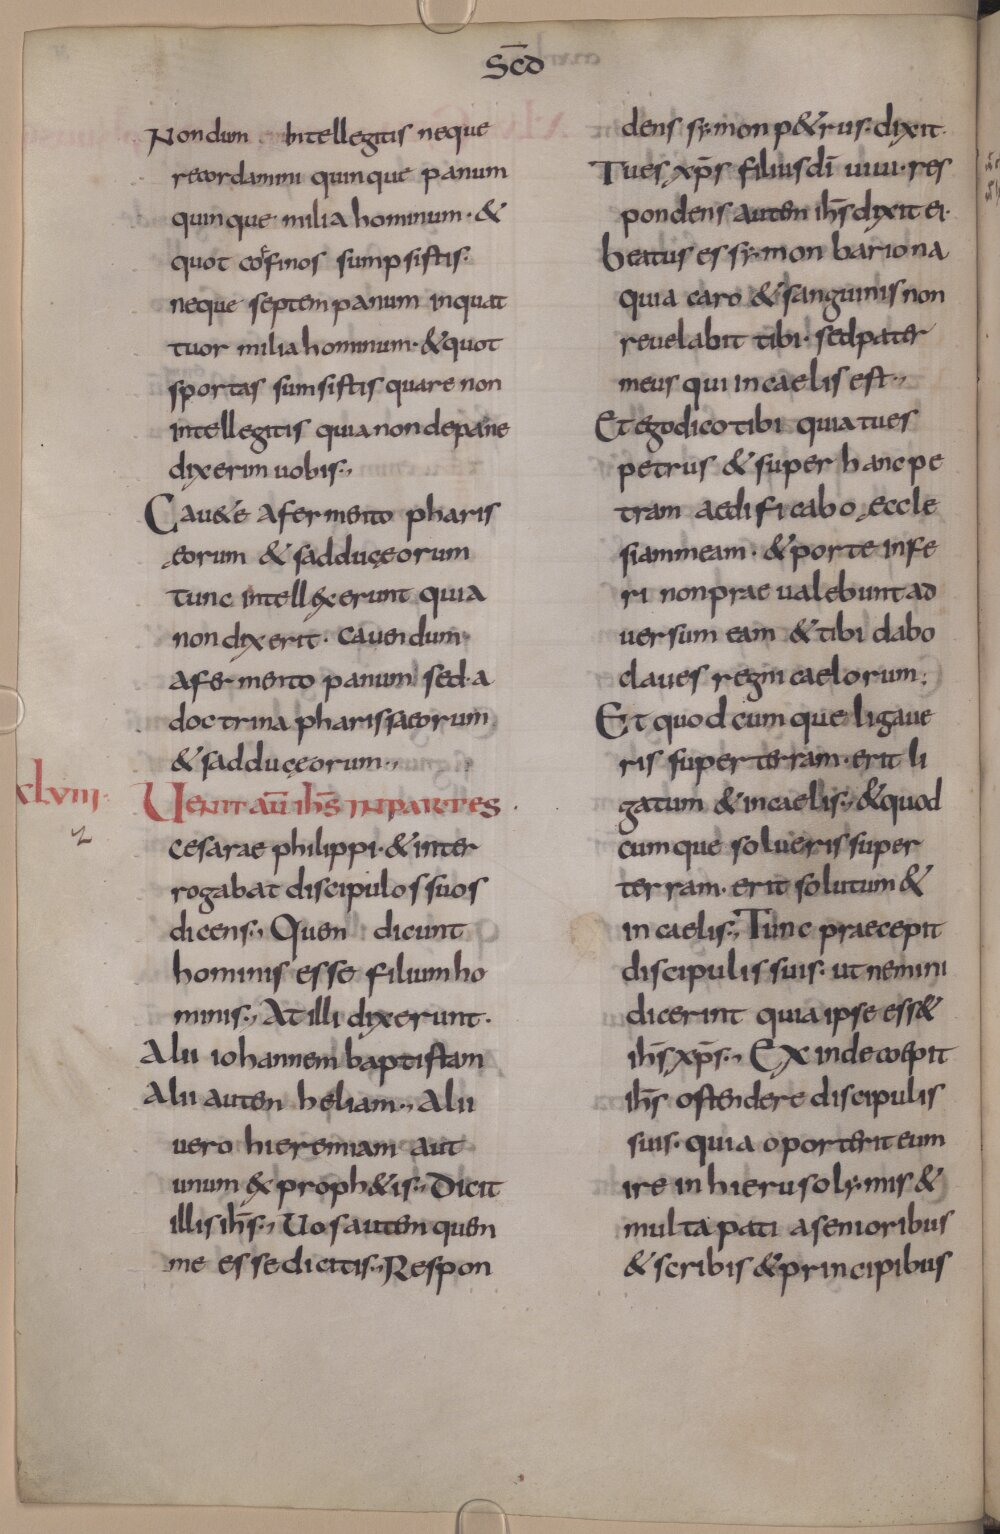 Sc̄d
Nondum intellegitis neque
recordamini quinque panum
quinque milia hominum · &
quot cofinos sumpsistis:
neque septem panum inquat
tuor milia hominum · & quot
sportas sumsistis quare non
intellegitis quia non de pane
dixerim uobis:,
Cau&e a fermento pharis
ęorum & sadduçeorum
tunc intellexerunt quia
non dixerit · cauendum
a fermento panum sed · a
doctrina pharisaeorum
& sadduçeorum:,
xlviii · Uenit aū ih̄s in partes
cesarae philippi · & inter
rogabat discipulos suos
dicens:, Quem dicunt
hominis esse filium ho
minis:, At illi dixerunt ·
Alii iohannem baptistam
Alii autem heliam:, Alii
uero hieremiam aut
unum ex proph&is:, Dicit
illis ih̄s:, Uos autem quem
me esse dicitis:, Respon
dens symon p&rus: dixit ·
Tu es xp̄s filius dī uiui · res
pondens autem ih̄s dixit ei ·
beatus es symon bariona
quia caro & sanguinis non
reuelabit tibi · sed pater
meus qui in caelis est:,
Et ego dico tibi quia tu es
petrus & super hanc pe
tram aedificabo ęccle
siam meam · & porte infe
ri non praeualebunt ad
uersum eam & tibi dabo
claues regni caelorum:
Et quodcumque ligaue
ris super terram · erit li
gatum & in caelis:, & quod
cumque solueris super
terram · erit solutum &
in caelis:, Tunc praecepit
discipulis suis: ut nemini
dicerint quia ipse ess&
ih̄s xp̄s:, Exinde coepit
ih̄s ostendere discipulis
suis · quia oporterit eum
ire in hierusolymis &
multa pati a senioribus
& scribis & principibus